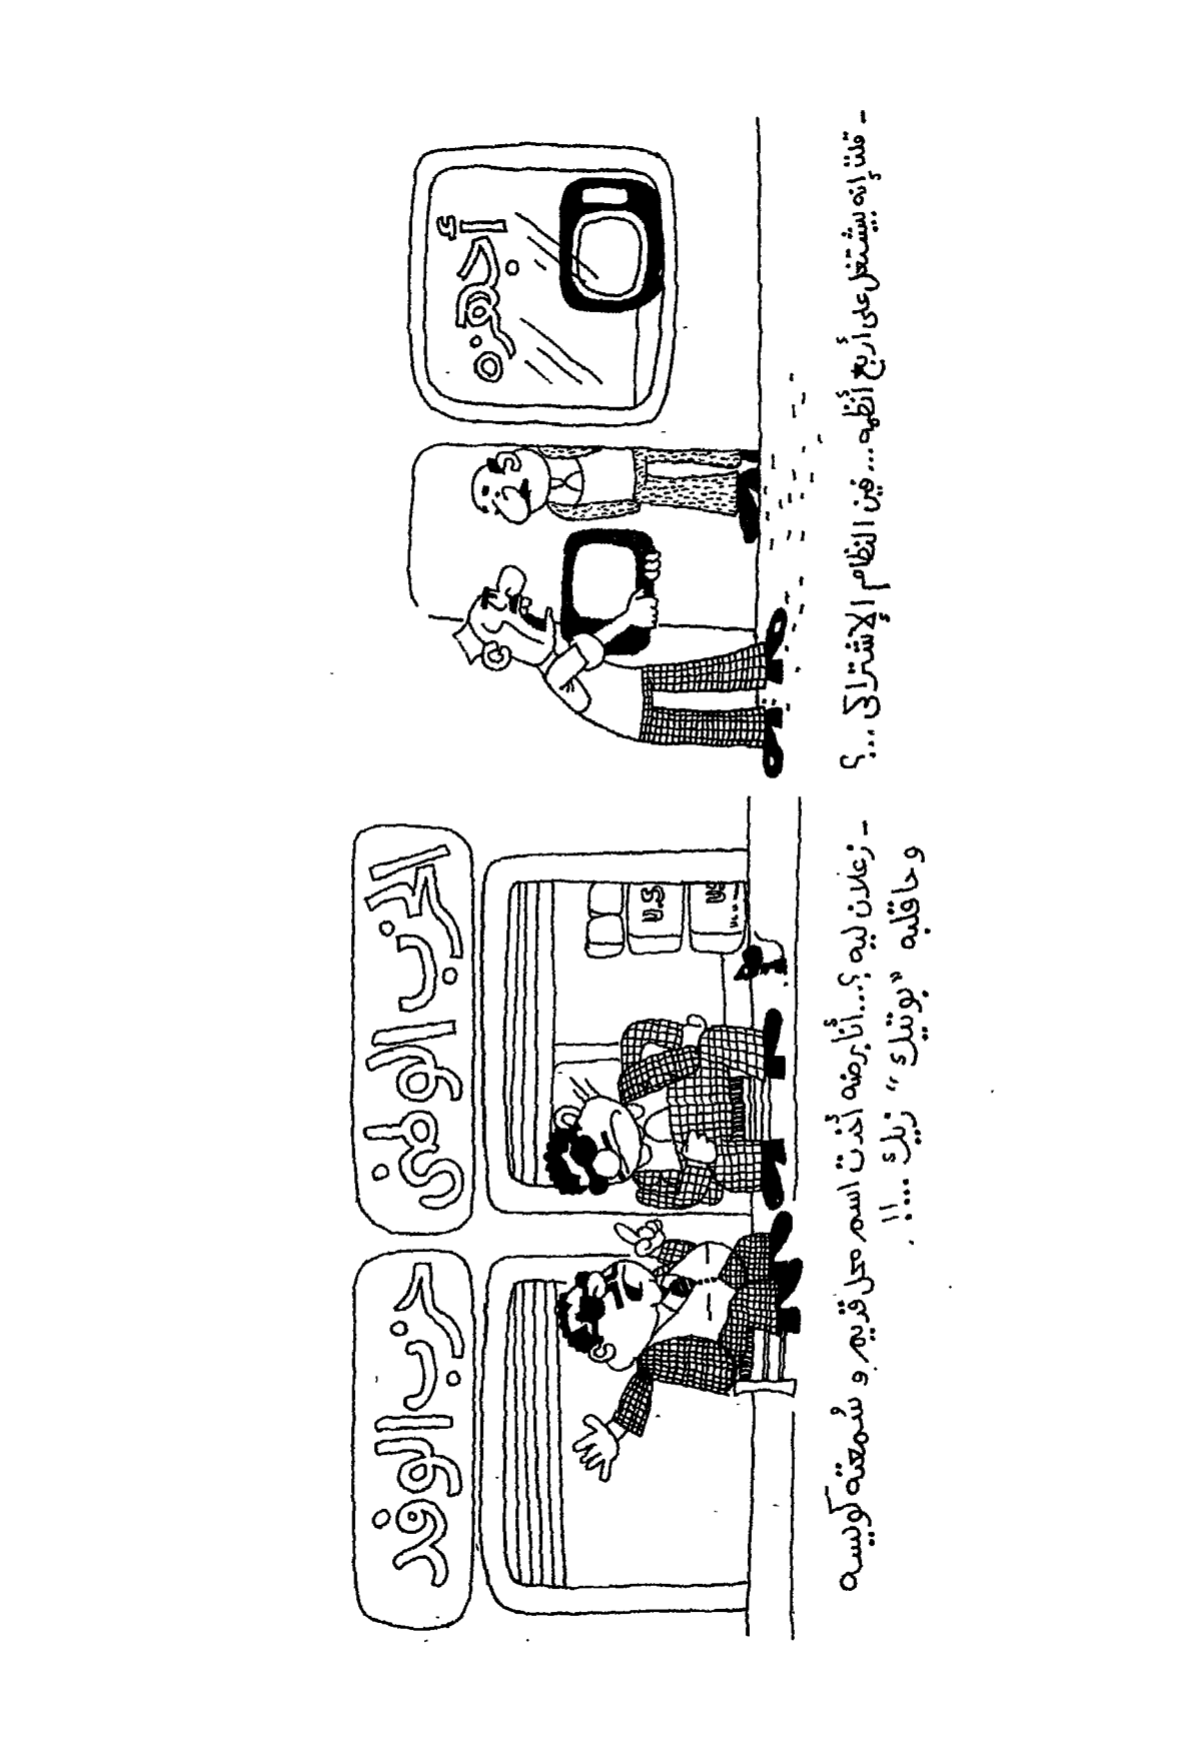 أجهزه
- قلت إنه يشتغل على أربع أنظمه... فين النظام الإشتراكى...؟
الحزب الوطنى
حزب الوفد
U.S
U.S
- زعلان ليه؟... أنا برضه أخدت اسم محل قديم و سُمعته كويسه
وحاقلبه "بوتيك" زيك....!!